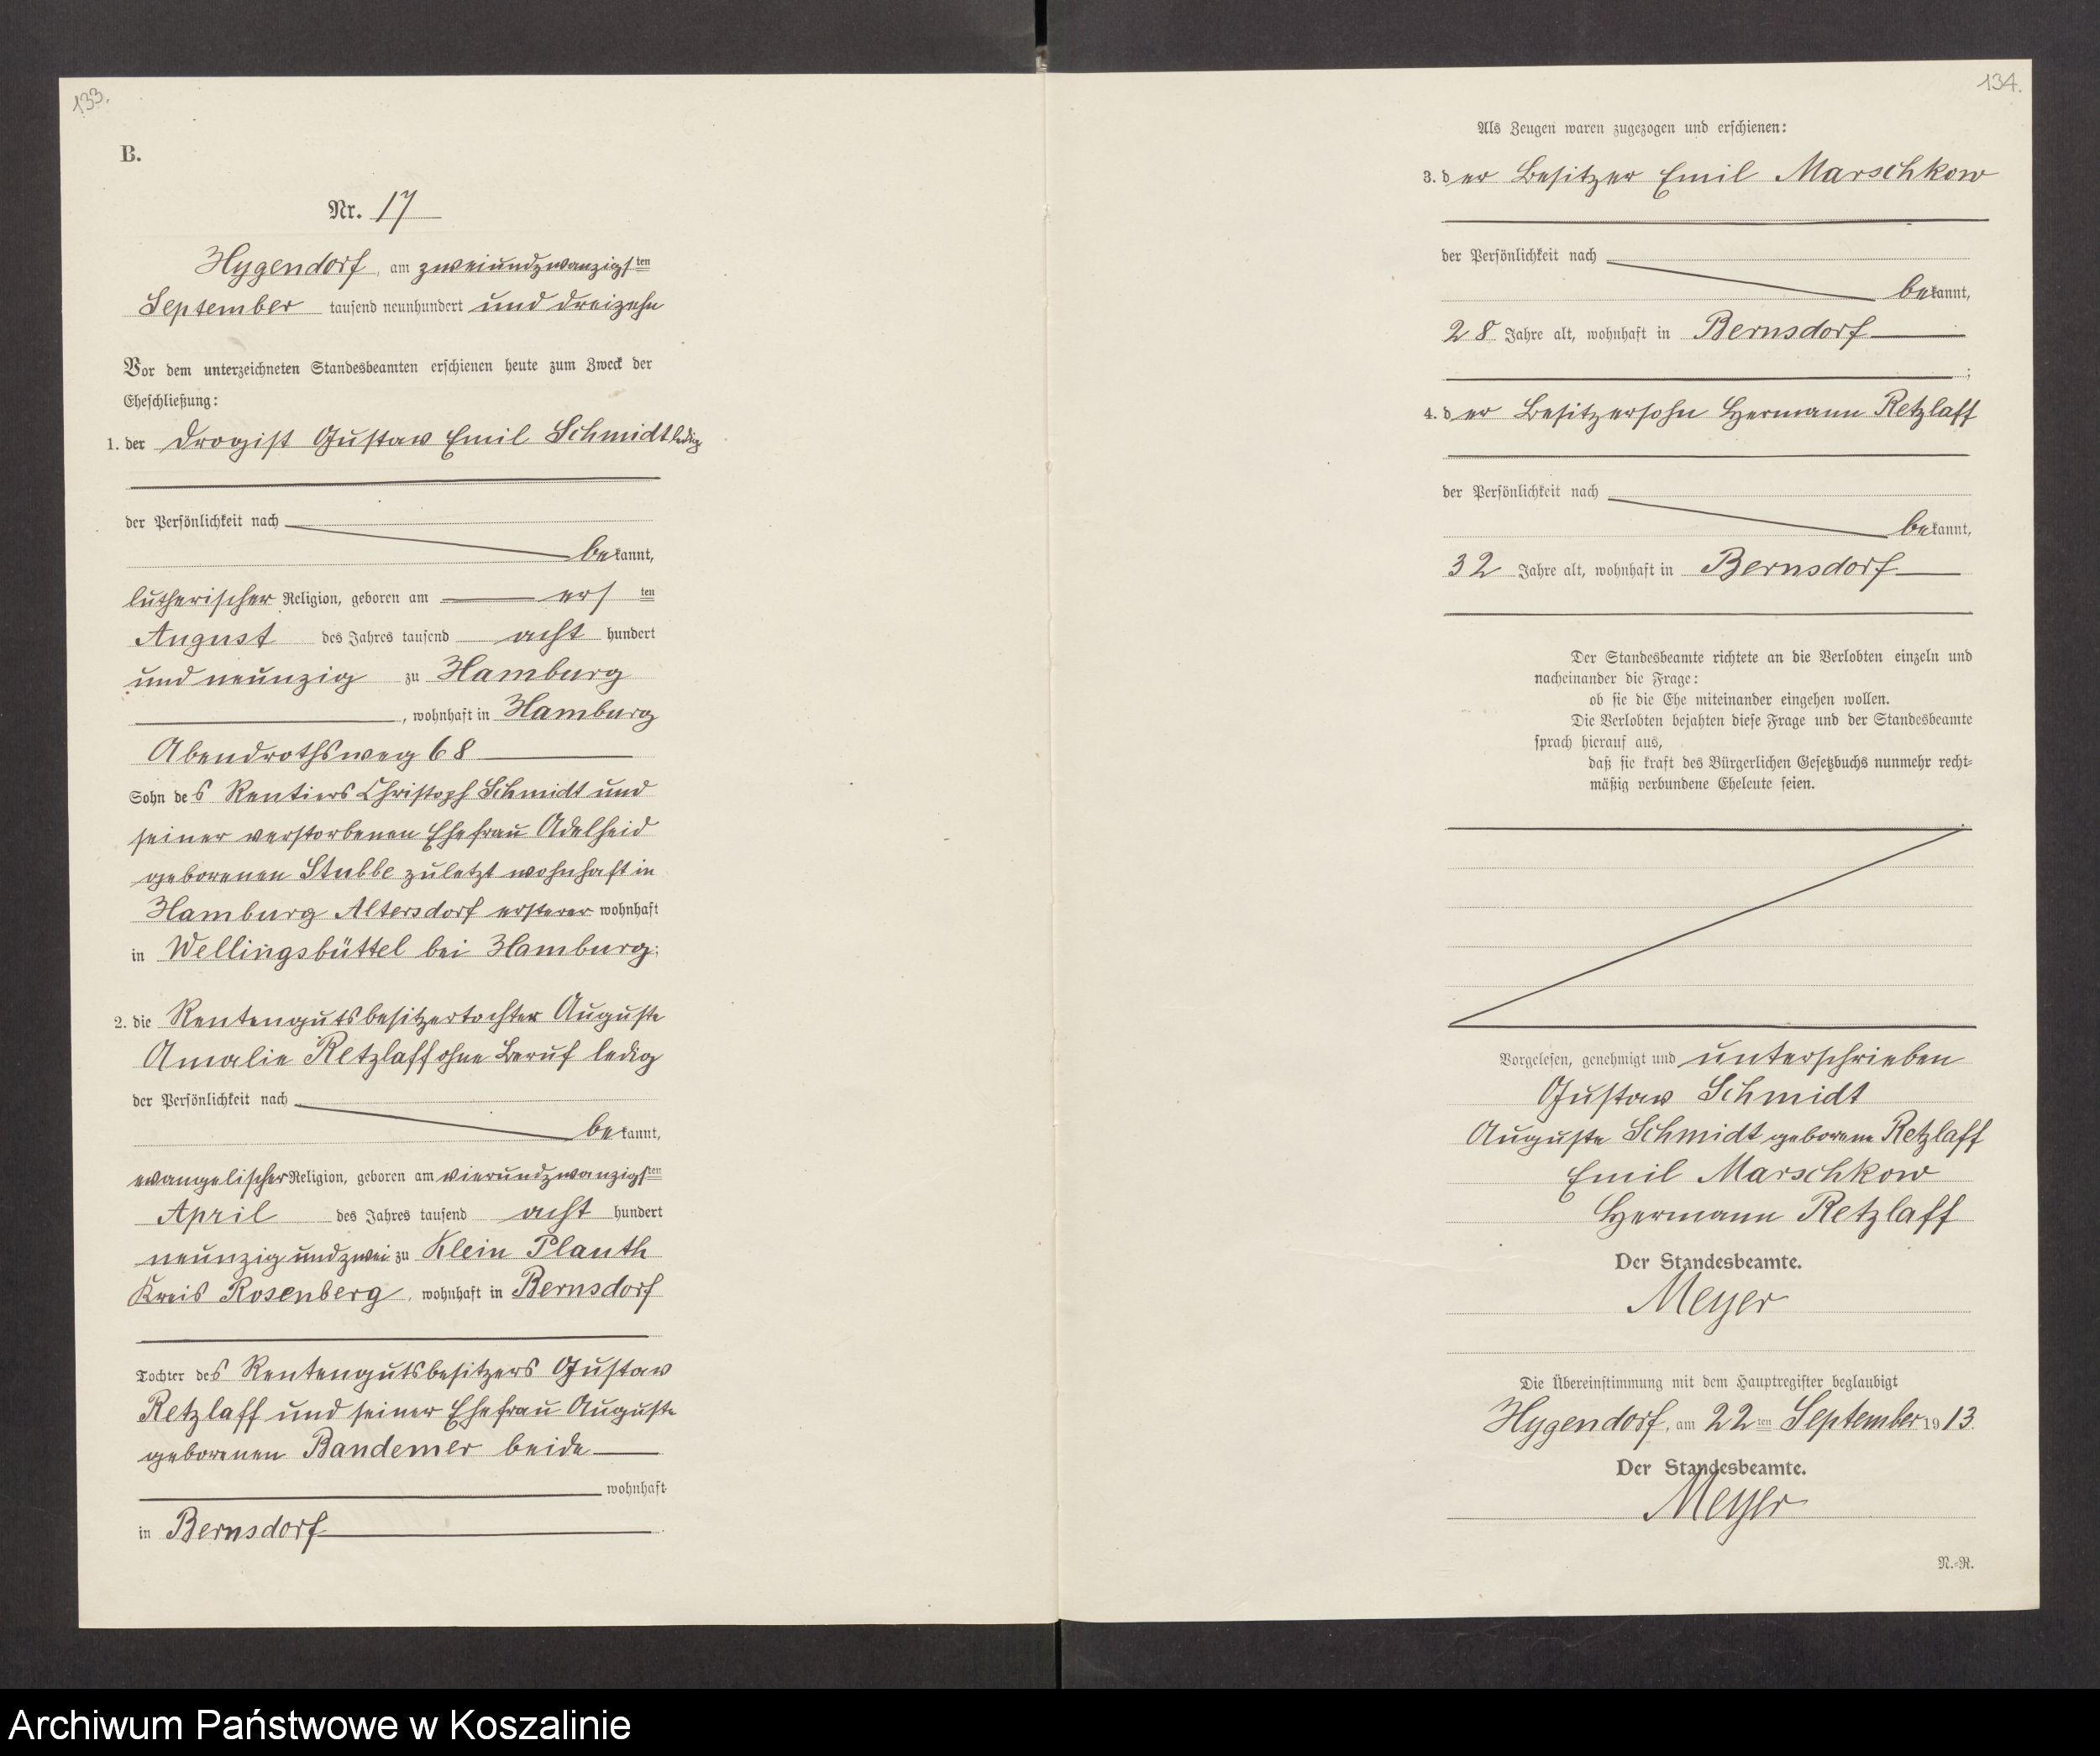 133.
B.
Nr. 17
Hygendorf, am zweiundzwanzigsten
September tausend neunhundert und dreizehn
Vor dem unterzeichneten Standesbeamten erschienen heute zum Zweck der
Eheschließung:
1. der Drogist Gustav Emil Schmidt ledig
der Persönlichkeit nach
bekannt,
lutherischer Religion, geboren am ersten
August des Jahres tausend acht hundert
und neunzig zu Hamburg
, wohnhaft in Hamburg
Abendrothsweg 68
Sohn des Rentiers Christoph Schmidt und
seiner verstorbenen Ehefrau Adelheid
geborenen Stubbe zuletzt wohnhaft in
Hamburg Altersdorf ersterer wohnhaft
in Wellingsbüttel bei Hamburg;
2. die Rentengutsbesitzertochter Auguste
Amalie Retzlaff ohne Beruf ledig
der Persönlichkeit nach
bekannt,
evangelischer Religion, geboren am vierundzwanzigsten
April des Jahres tausend acht hundert
neunzig und zwei zu Klein Plauth
Kreis Rosenberg, wohnhaft in Bernsdorf
Tochter des Rentengutsbesitzers Gustav
Retzlaff und seiner Ehefrau Auguste
geborenen Bandemer beide
wohnhaft
in Bernsdorf
134.
Als Zeugen waren zugezogen und erschienen:
3. der Besitzer Emil Marschkow
der Persönlichkeit nach
bekannt,
28 Jahre alt, wohnhaft in Bernsdorf
;
4. der Besitzersohn Hermann Retzlaff
der Persönlichkeit nach
bekannt,
32 Jahre alt, wohnhaft in Bernsdorf
Der Standesbeamte richtete an die Verlobten einzeln und
nacheinander die Frage:
ob sie die Ehe miteinander eingehen wollen.
Die Verlobten bejahten diese Frage und der Standesbeamte
sprach hierauf aus,
daß sie kraft des Bürgerlichen Gesetzbuchs nunmehr recht-
mäßig verbundene Eheleute seien.
Vorgelesen, genehmigt und unterschrieben
Gustav Schmidt
Auguste Schmidt geborene Retzlaff
Emil Marschkow
Hermann Retzlaff
Der Standesbeamte.
Meyer
Die Übereinstimmung mit dem Hauptregister beglaubigt
Hygendorf, am 22ten September 1913.
Der Standesbeamte.
Meyer
N.-R.
Archiwum Państwowe w Koszalinie